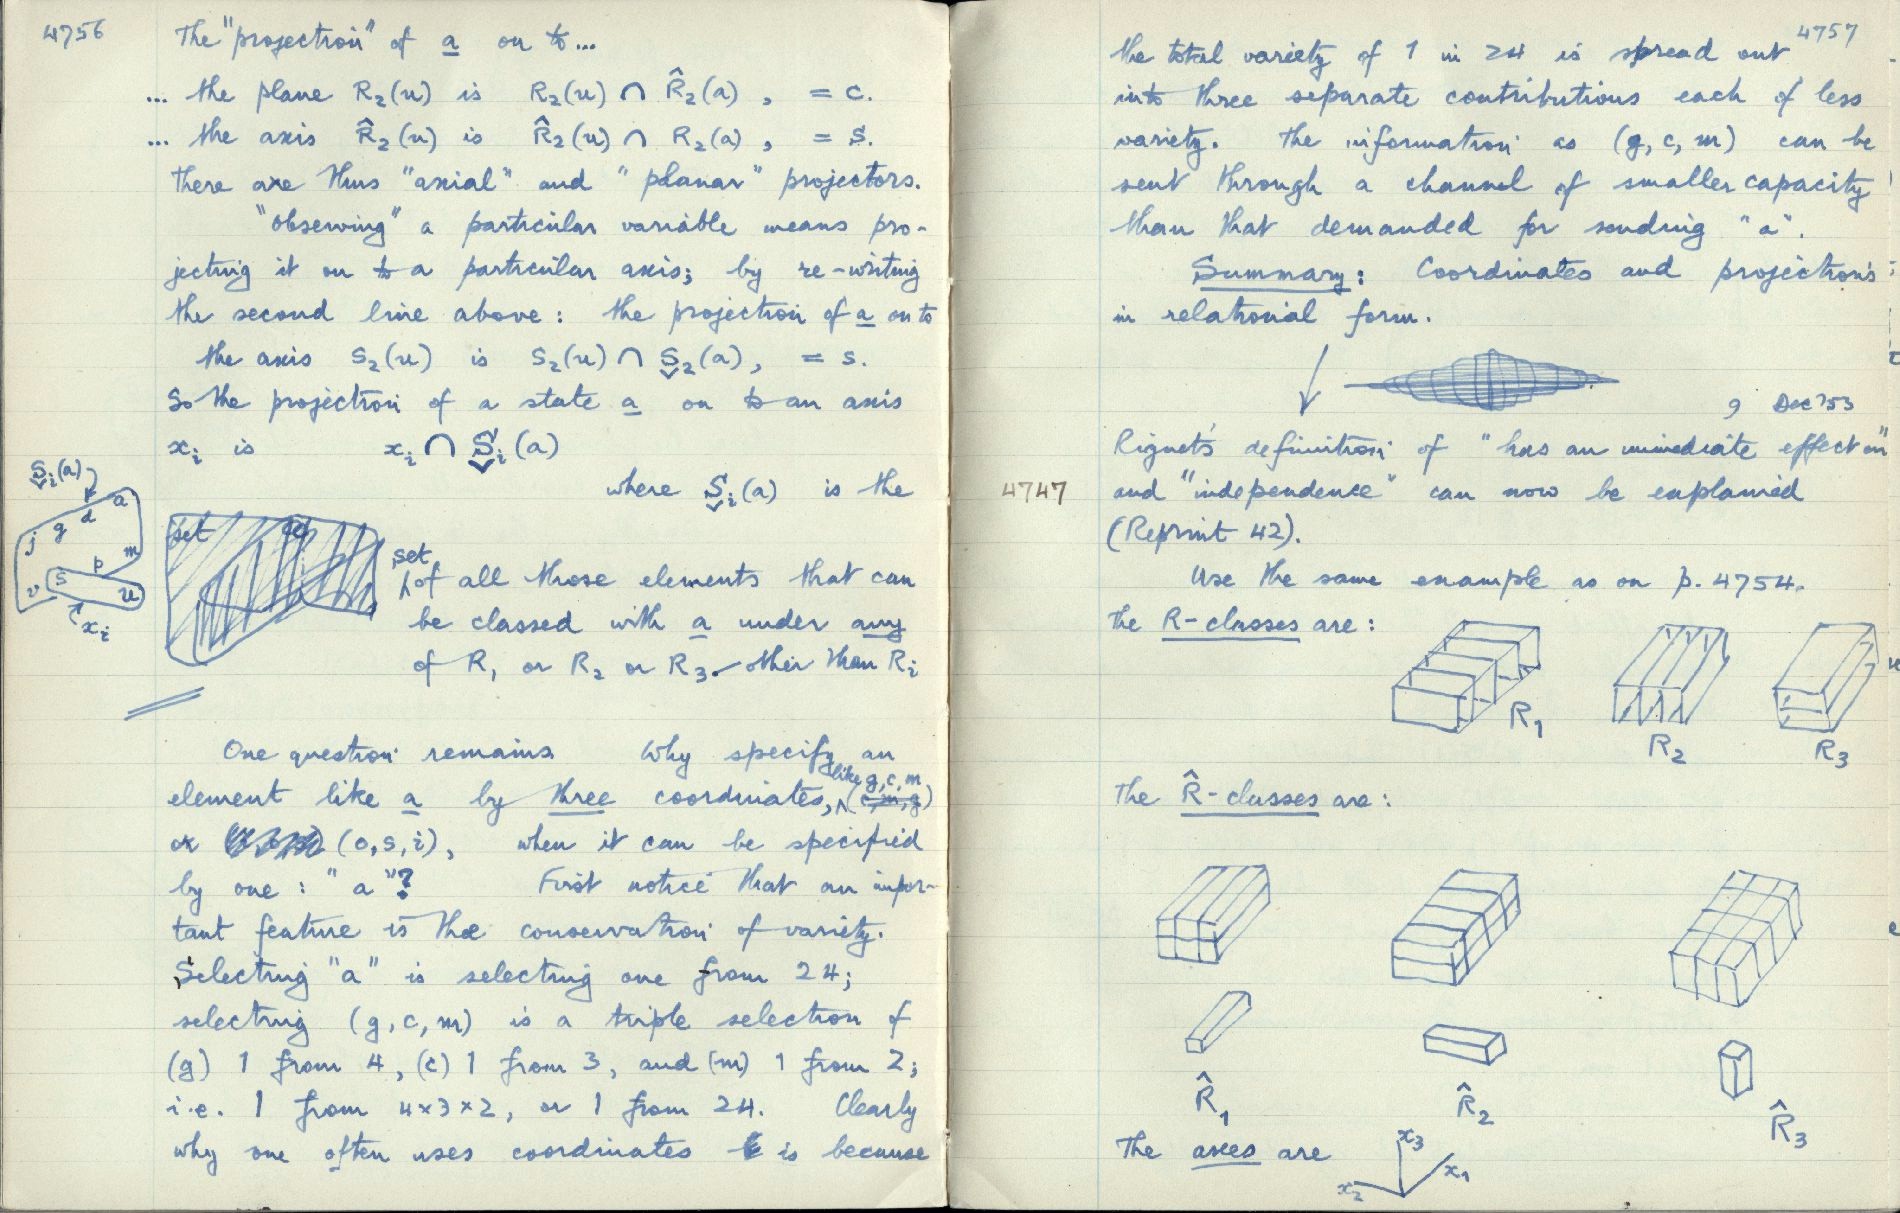 4756
The "projection" of a on to...
... the plane R₂(u) is R₂(u) ∩ R̂₂(a) , = c.
... the axis R̂₂(u) is R̂₂(u) ∩ R₂(a) , = s.
There are thus "axial" and "planar" projectors.
"Observing" a particular variable means pro-
jecting it on to a particular axis; by re-writing
the second line above: the projection of a on to
the axis S₂(u) is S₂(u) ∩ S̬₂(a), = s.
So the projection of a state a on to an axis
xᵢ is xᵢ ∩ S̬ᵢ(a)
where S̬ᵢ(a) is the
S̬ᵢ(a)
j g d a
v s p m u
xᵢ
set
set
of all those elements that can
be classed with a under any
of R₁ or R₂ or R₃ other than Rᵢ
One question remains. Why specify an
element like a by three coordinates, like g, c, m (c, m, g)
or (o, s, i), when it can be specified
by one: "a"? First notice that an impor-
tant feature is the conservation of variety.
Selecting "a" is selecting one from 24;
selecting (g, c, m) is a triple selection of
(g) 1 from 4, (c) 1 from 3, and (m) 1 from 2;
i.e. 1 from 4×3×2, or 1 from 24. Clearly
why one often uses coordinates is because
4757
the total variety of 1 in 24 is spread out
into three separate contributions each of less
variety. The information as (g, c, m) can be
sent through a channel of smaller capacity
than that demanded for sending "a".
Summary: Coordinates and projections
in relational form.
9 Dec '53
Riguet's definition of "has an immediate effect on"
4747 and "independence" can now be explained
(Reprint 42).
Use the same example as on p. 4754.
The R-classes are:
R₁ R₂ R₃
The R̂-classes are:
R̂₁ R̂₂ R̂₃
The axes are
x₃
x₁
x₂